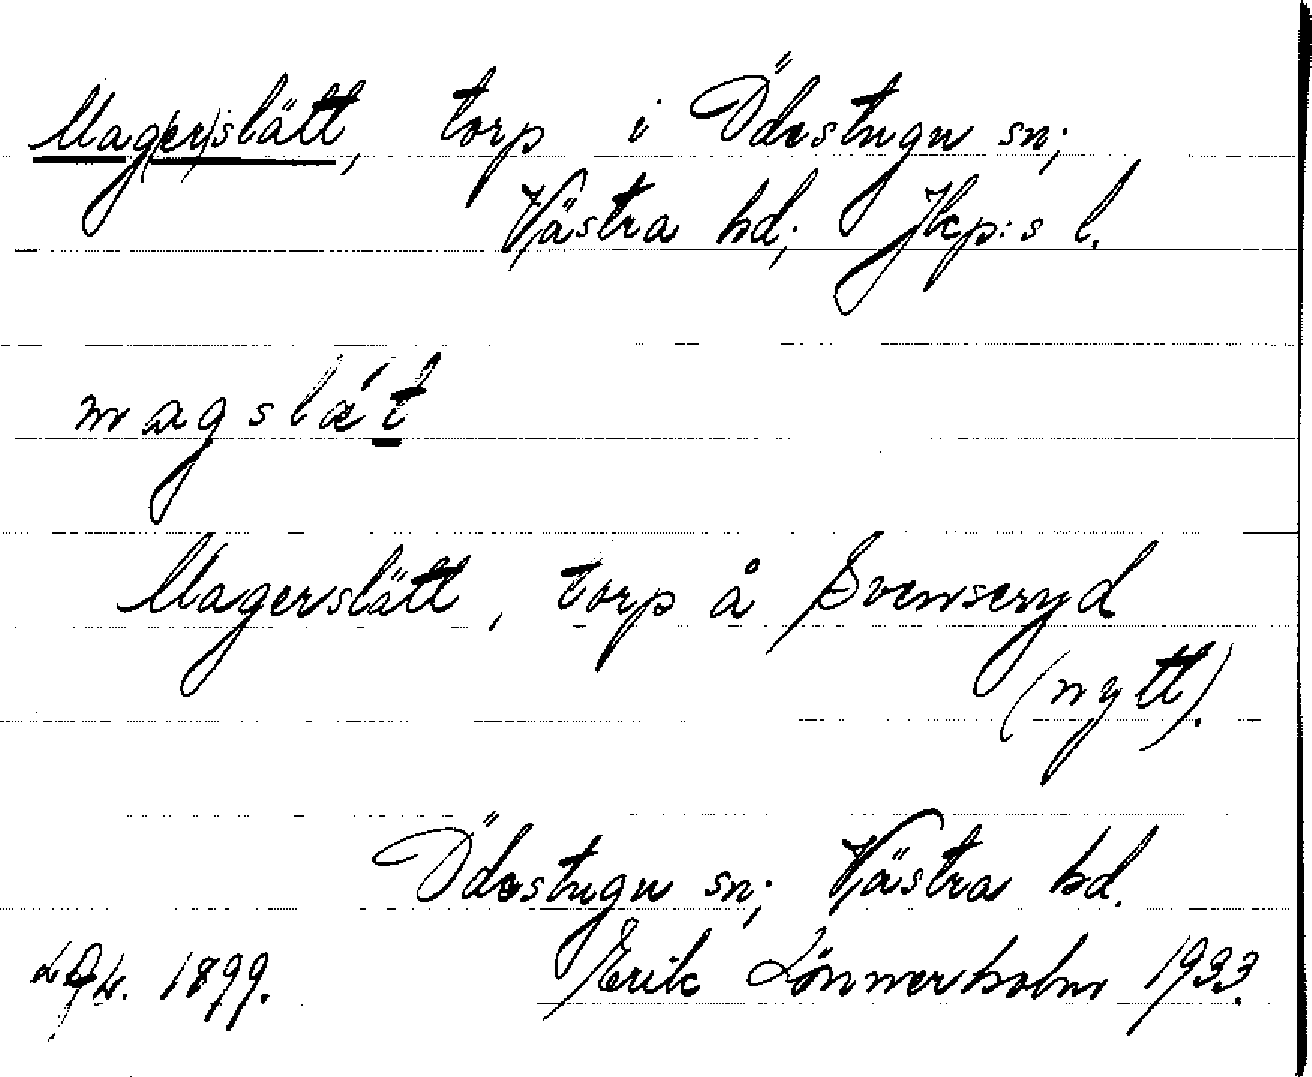 Mag(er)slätt, torp i Ödestugu sn;
Västra hd; Jkp:s l.
magslæ't
Magerslätt, torp å Svenseryd
(nytt).
Ödestugu sn; Västra hd.
1899. Erik Lönnerholm 1933.